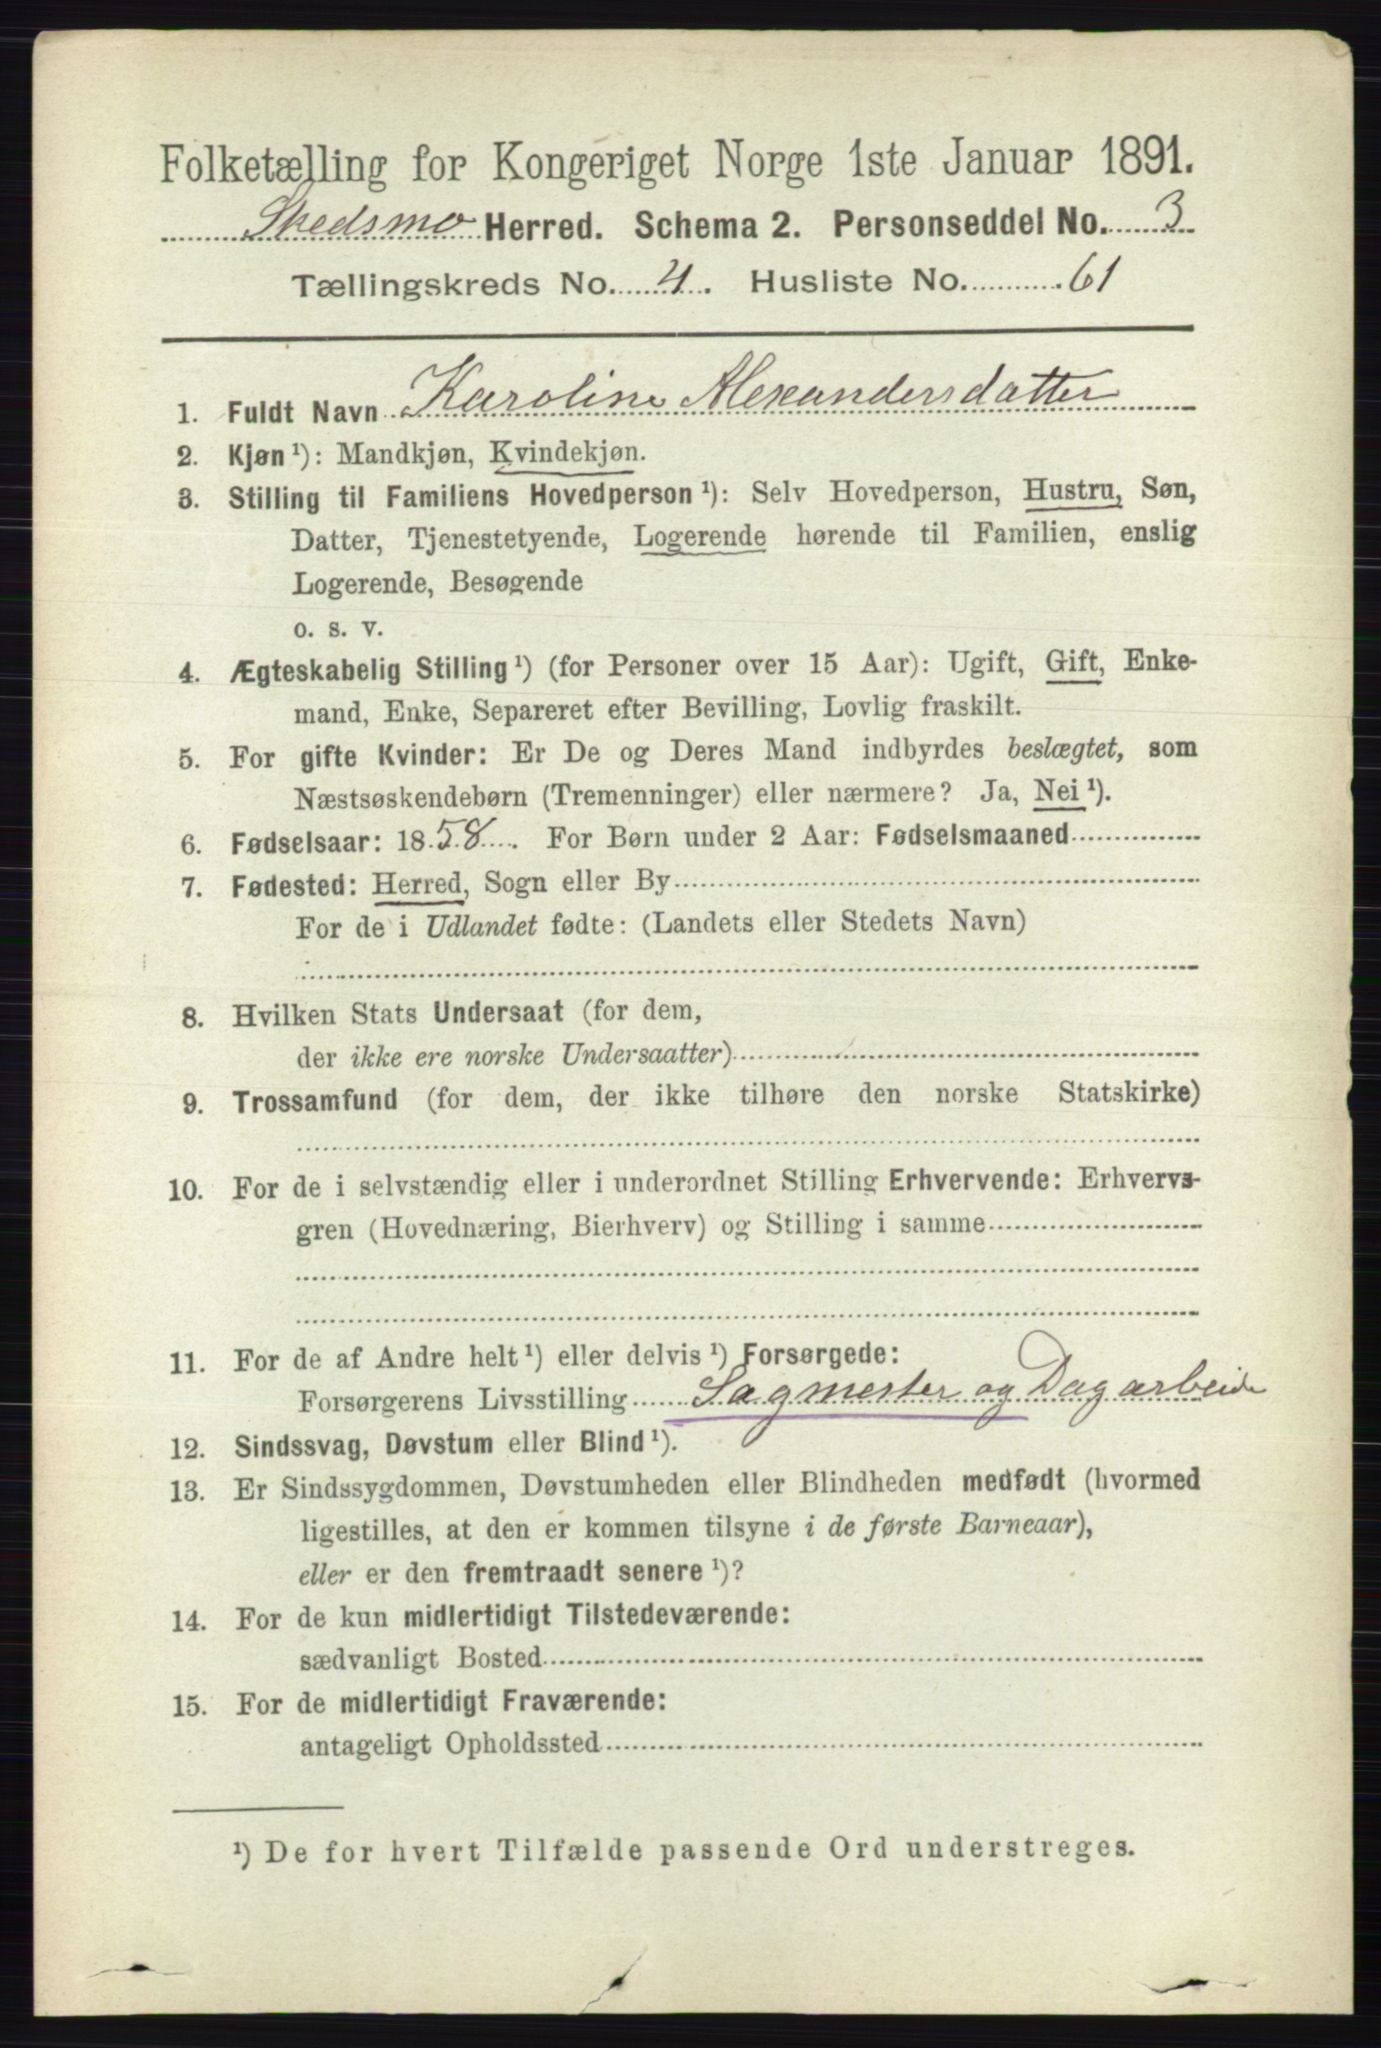 Folketælling for Kongeriget Norge 1ste Januar 1891.
Skedsmo Herred. Schema 2. Personseddel No. 3
Tællingskreds No. 4. Husliste No. 61
1. Fuldt Navn Karoline Alexandersdatter
2. Kjøn ¹): Mandkjøn, Kvindekjøn.
3. Stilling til Familiens Hovedperson ¹): Selv Hovedperson, Hustru, Søn,
Datter, Tjenestetyende, Logerende hørende til Familien, enslig
Logerende, Besøgende
o. s. v.
4. Ægteskabelig Stilling ¹) (for Personer over 15 Aar): Ugift, Gift, Enke-
mand, Enke, Separeret efter Bevilling, Lovlig fraskilt.
5. For gifte Kvinder: Er De og Deres Mand indbyrdes beslægtet, som
Næstsøskendebørn (Tremenninger) eller nærmere? Ja, Nei ¹).
6. Fødselsaar: 1858. For Børn under 2 Aar: Fødselsmaaned
7. Fødested: Herred, Sogn eller By
For de i Udlandet fødte: (Landets eller Stedets Navn)
8. Hvilken Stats Undersaat (for dem,
der ikke ere norske Undersaatter)
9. Trossamfund (for dem, der ikke tilhøre den norske Statskirke)
10. For de i selvstændig eller i underordnet Stilling Erhvervende: Erhvervs-
gren (Hovednæring, Bierhverv) og Stilling i samme
11. For de af Andre helt ¹) eller delvis ¹) Forsørgede:
Forsørgerens Livsstilling Sagmester og Dagarbeide
12. Sindssvag, Døvstum eller Blind ¹).
13. Er Sindssygdommen, Døvstumheden eller Blindheden medfødt (hvormed
ligestilles, at den er kommen tilsyne i de første Barneaar),
eller er den fremtraadt senere ¹)?
14. For de kun midlertidigt Tilstedeværende:
sædvanligt Bosted
15. For de midlertidigt Fraværende:
antageligt Opholdssted
¹) De for hvert Tilfælde passende Ord understreges.